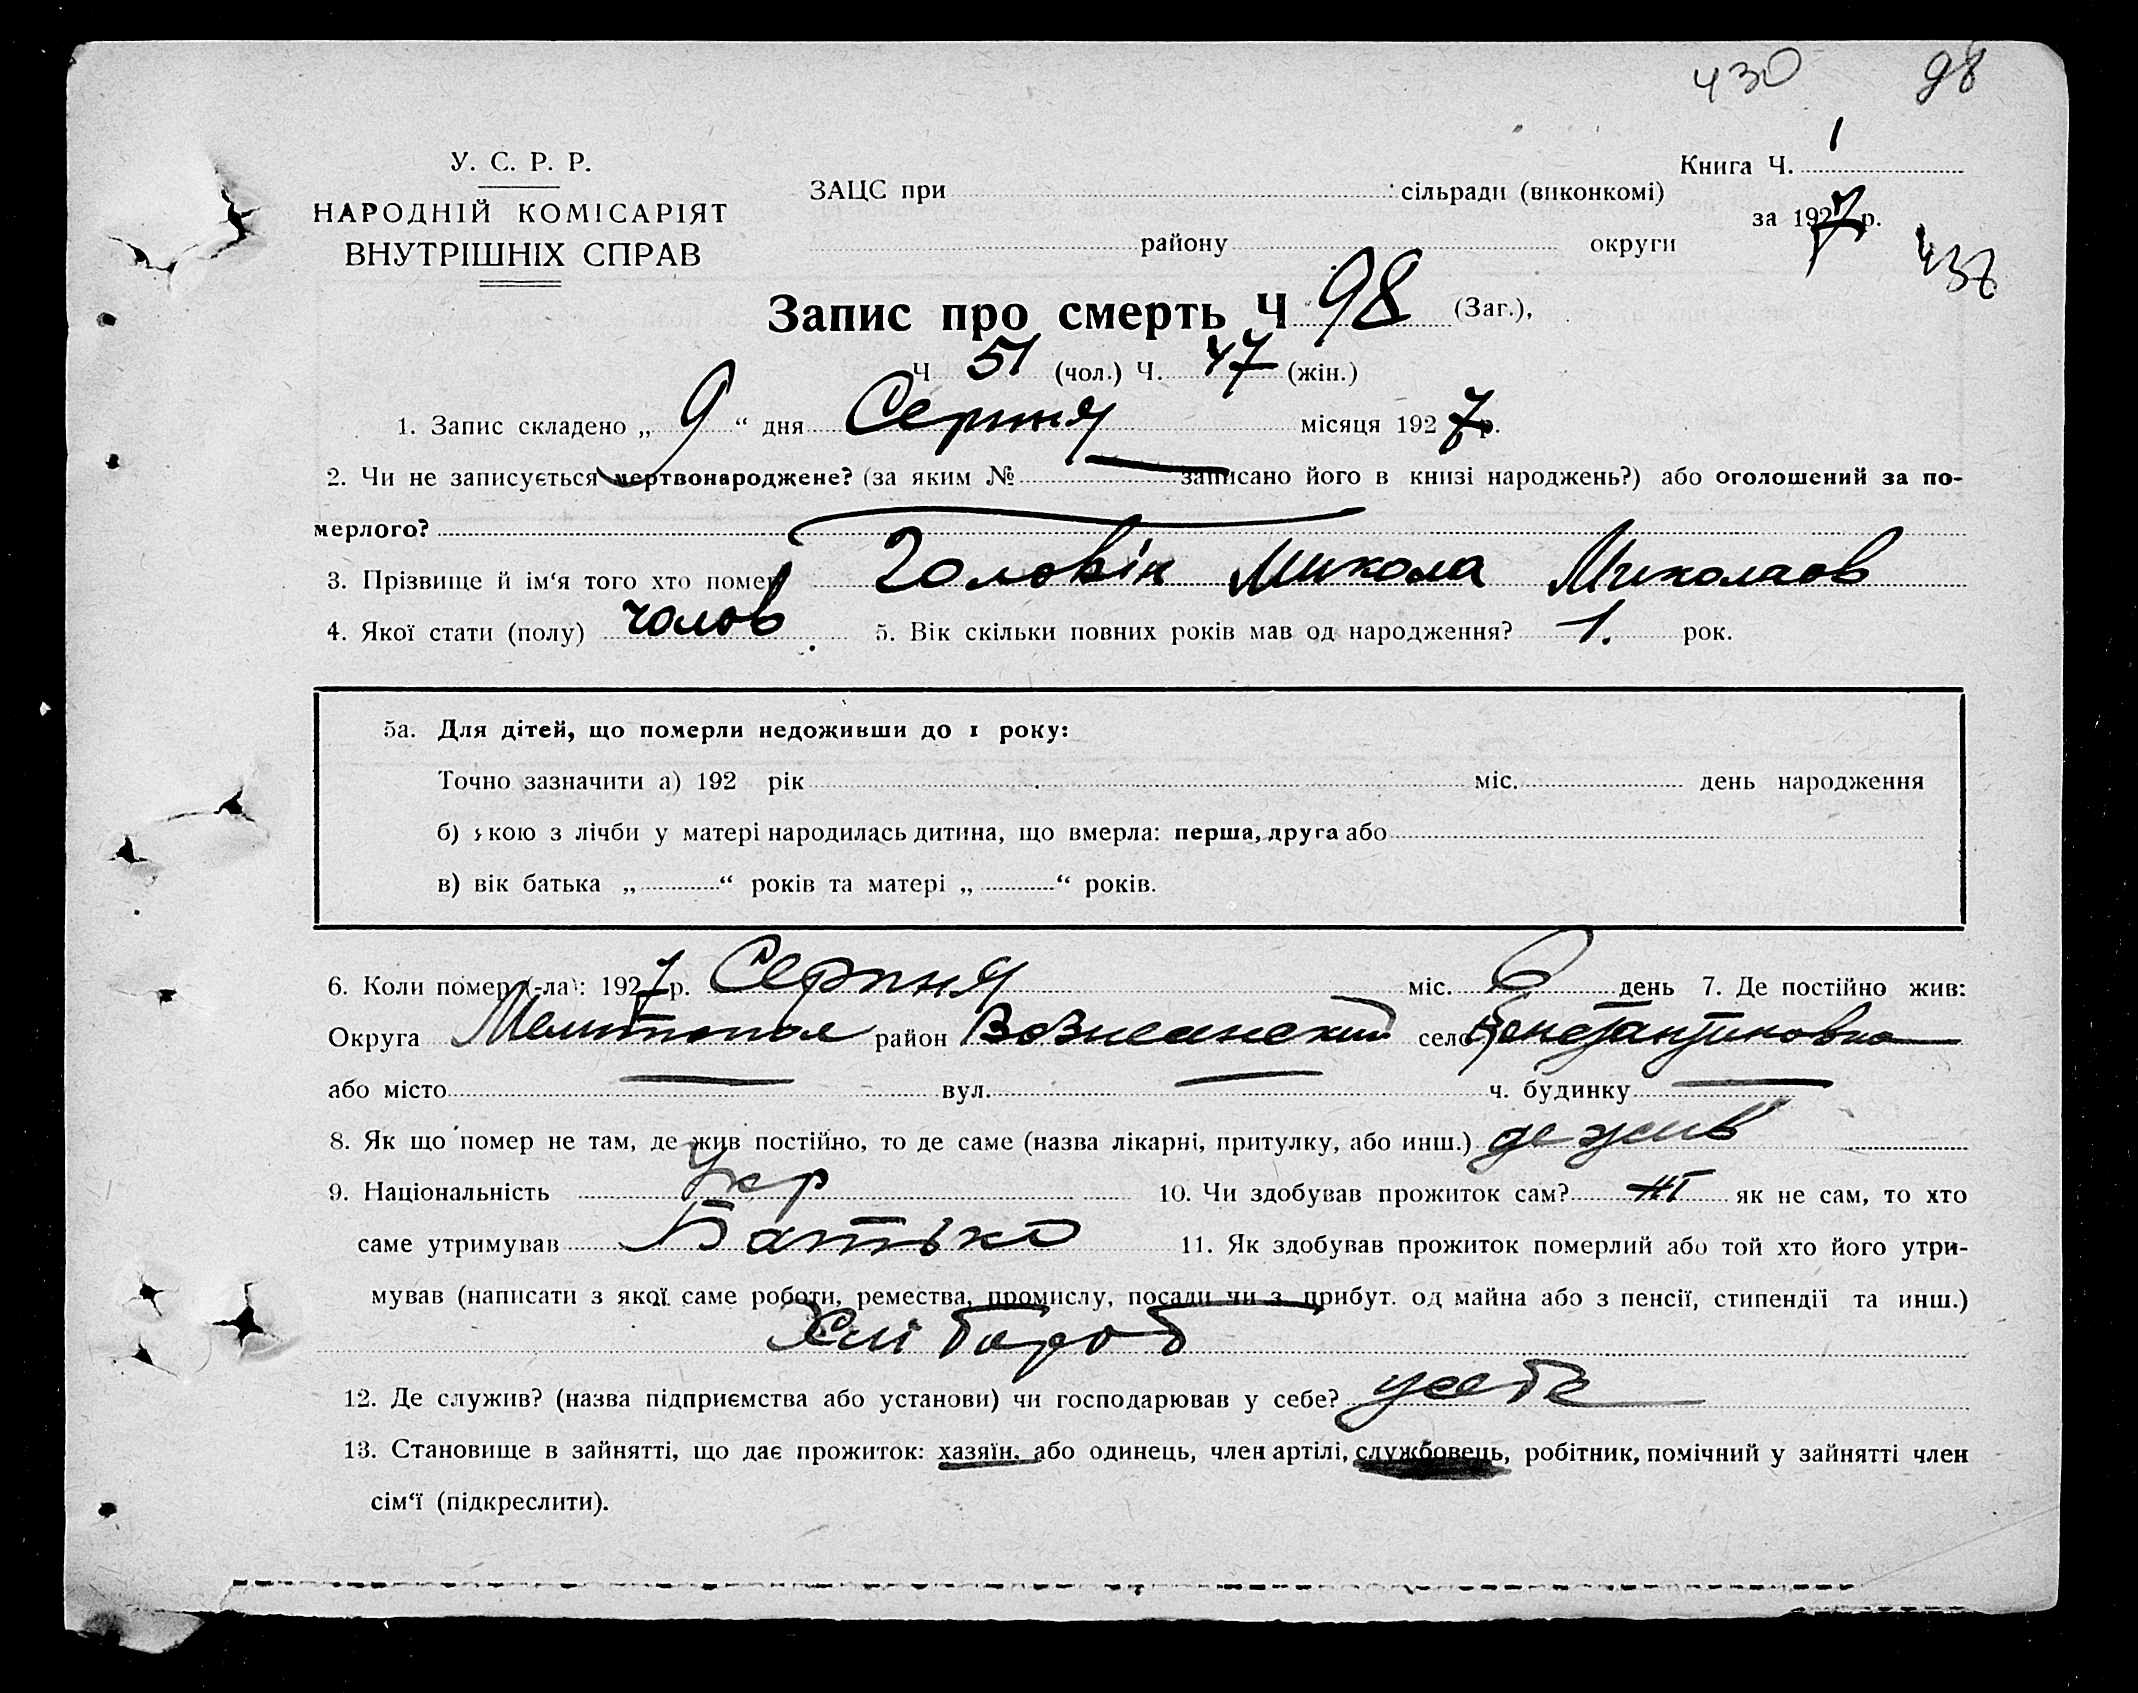 430 98
У. С. Р. Р.
НАРОДНІЙ КОМІСАРІЯТ
ВНУТРІШНІХ СПРАВ
ЗАЦС при сільради (виконкомі)
району округи
Книга Ч. 1
за 1927 р.
438
Запис про смерть Ч 98 (Заг.),
Ч 51 (чол.) Ч. 47 (жін.)
1. Запис складено „ 9 “ дня Серпня місяця 1927 р.
2. Чи не записується мертвонароджене? (за яким № — записано його в книзі народжень?) або оголошений за по-
мерлого?
3. Прізвище й ім‘я того хто помер Головін Микола Миколаов
4. Якої стати (полу) чолов 5. Вік скільки повних років мав од народження? 1. рок.
5а. Для дітей, що померли недоживши до 1 року:
Точно зазначити а) 192 рік міс. день народження
б) якою з лічби у матері народилась дитина, що вмерла: перша, друга або
в) вік батька „ “ років та матері „ “ років.
6. Коли помер (-ла): 1927 р. Серпня міс. 6 день 7. Де постійно жив:
Округа Мелитополя район Вознеанский село Константиновка
або місто — вул. — ч. будинку —
8. Як що помер не там, де жив постійно, то де саме (назва лікарні, притулку, або инш.) де жив
9. Національність Укр 10. Чи здобував прожиток сам? ні як не сам, то хто
саме утримував Батько 11. Як здобував прожиток померлий або той хто його утри-
мував (написати з якої саме роботи, ремества, промислу, посади чи з прибут. од майна або з пенсії, стипендії та инш.)
Хлібороб
12. Де служив? (назва підприємства або установи) чи господарював у себе? у себе
13. Становище в зайнятті, що дає прожиток: хазяїн, або одинець, член артілі, службовець, робітник, помічний у зайнятті член
сім‘ї (підкреслити).